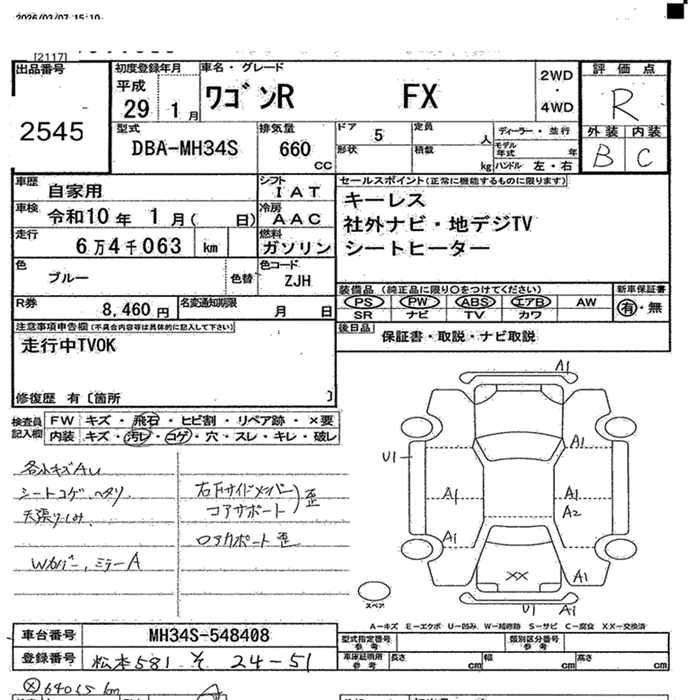 2026/03/07 15:10
[2117]
出品番号
2545
初度登録年月
平成
29 1月
車名・グレード
ワゴンR FX
2WD
・
4WD
評価点
R
外装 内装
B C
型式
DBA-MH34S
排気量
660
CC
ドア 5
形状
定員 人
積載 kg
ディーラー・並行
モデル
年式 年
ハンドル 左・右
車歴 自家用
シフト IAT
車検 令和10年 1月( 日)
冷房 AAC
走行 6万4千063 km
燃料 ガソリン
色 ブルー
色替
色コード ZJH
R券 8,460円
名変通知期限 月 日
セールスポイント(正常に機能するものに限ります)
キーレス
社外ナビ・地デジTV
シートヒーター
装備品 (純正品に限り○をつけてください)
新車保証書
PS PW ABS エアB AW
SR ナビ TV カワ
有・無
後日品 保証書・取説・ナビ取説
注意事項申告欄(不具合内容等は具体的に記入して下さい)
走行中TVOK
修復歴 有〔箇所 〕
検査員
記入欄
FW キズ・飛石・ヒビ割・リペア跡・×要
内装 キズ・汚レ・コゲ・穴・スレ・キレ・破レ
各小キズAU
シートコゲ、ヘタリ
天張りしみ
Wカバー, ミラーA
右下サイドメンバー
コアサポート
歪
ロアサポート 歪
A1
A1
U1
A1
A1
A2
A1
A1
XX
U1
A1
スペア
A-キズ E-エクボ U-凹み W-補修跡 S-サビ C-腐食 XX-交換済
車台番号 MH34S-548408
登録番号 松本581 そ 24-51
型式指定番号
参考
類別区分番号
車庫証明用
参考
長さ cm
幅 cm
高さ cm
ⓧ64015 km